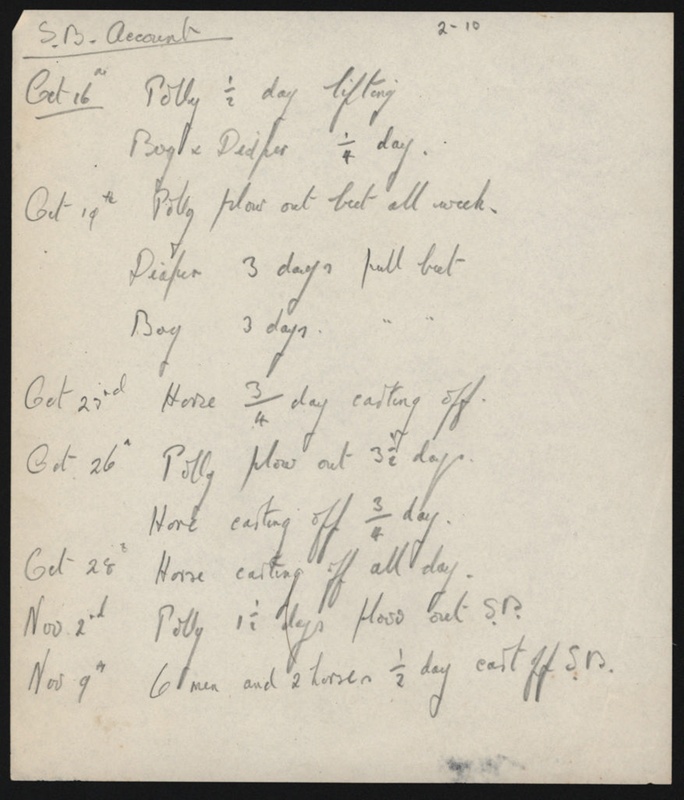 S.B. Account 2-10
Oct 16th Polly ½ day lifting
Boy & Diaper ¼ day.
Oct 19th Polly plow out beet all week.
Diaper 3 days pull beet
Boy 3 days. " "
Oct 23rd Horse ¾ day casting off.
Oct 26th Polly plow out 3½ days.
Horse casting off ¾ day.
Oct 28th Horse casting off all day.
Nov 2nd Polly 1½ days plow out S.B.
Nov 9th 6 men and 2 horses ½ day cast off S.B.